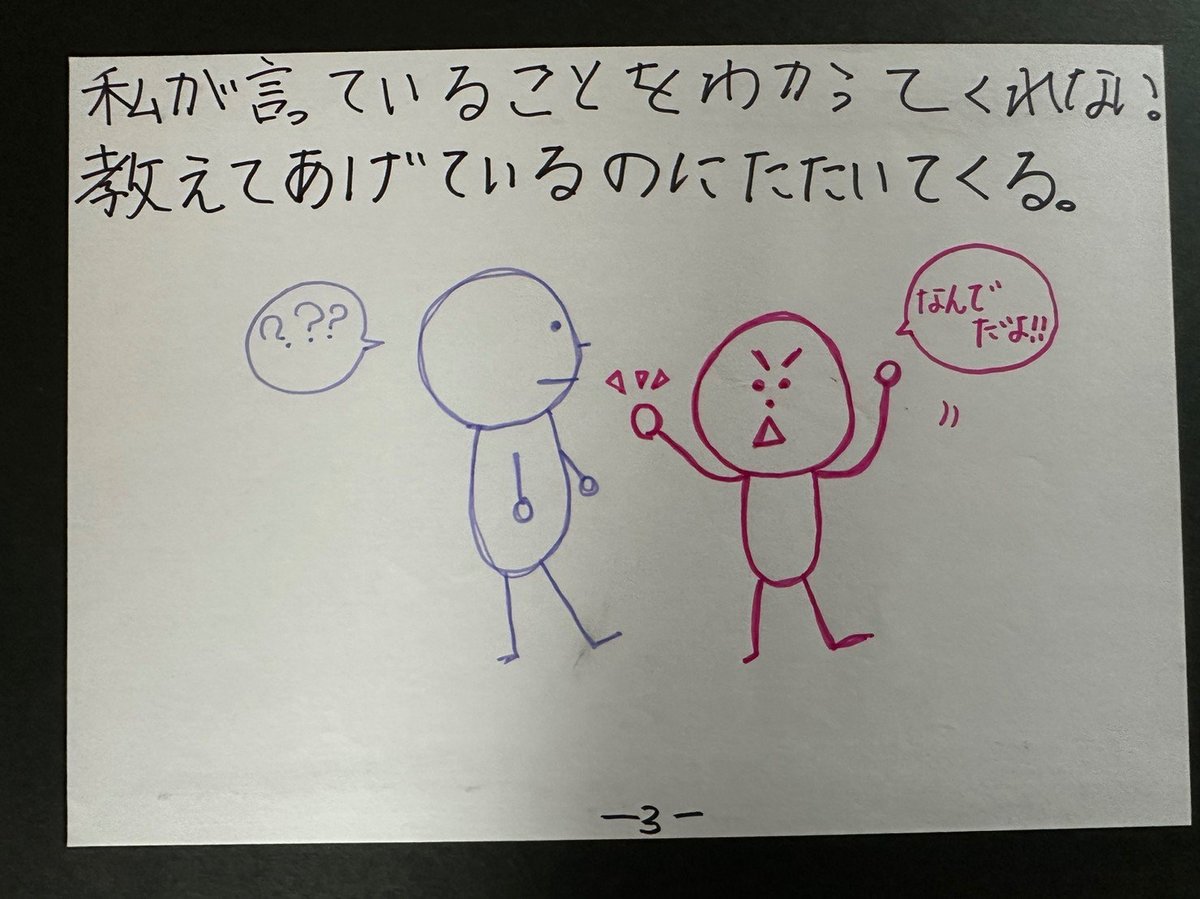 私が言っていることをわかってくれない。
教えてあげているのにたたいてくる。
???
なんで
だよ!!
-3-